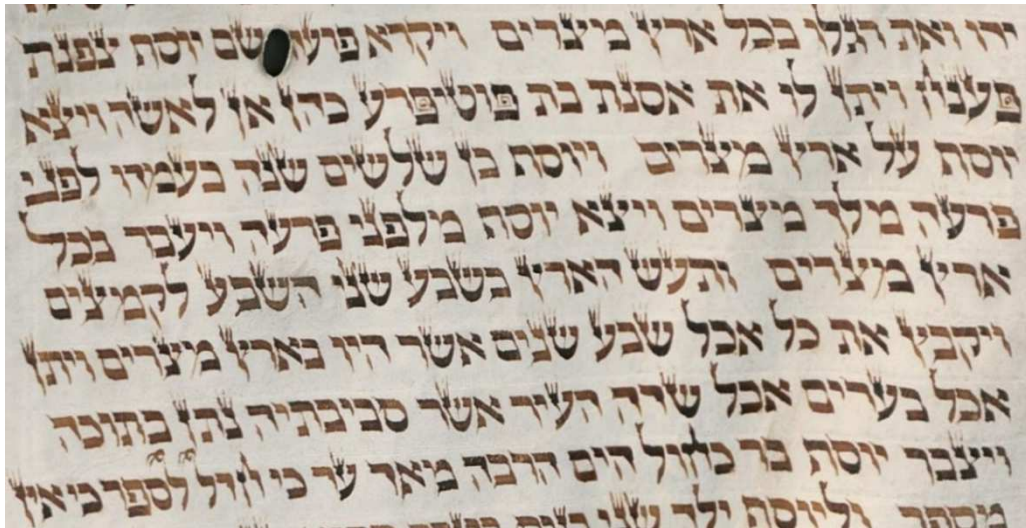 ידו ואת רגלו בכל ארץ מצרים ויקרא פרעה שם יוסף צפנת
פענח ויתן לו את אסנת בת פוטיפרע כהן אן לאשה ויצא
יוסף על ארץ מצרים ויוסף בן שלשים שנה בעמדו לפני
פרעה מלך מצרים ויצא יוסף מלפני פרעה ויעבר בכל
ארץ מצרים ותעש הארץ בשבע שני השבע לקמצים
ויקבץ את כל אכל שבע שנים אשר היו בארץ מצרים ויתן
אכל בערים אכל שדה העיר אשר סביבתיה נתן בתוכה
ויצבר יוסף בר כחול הים הרבה מאד עד כי חדל לספר כי אין
מספר וליוסף ילד שני בנים